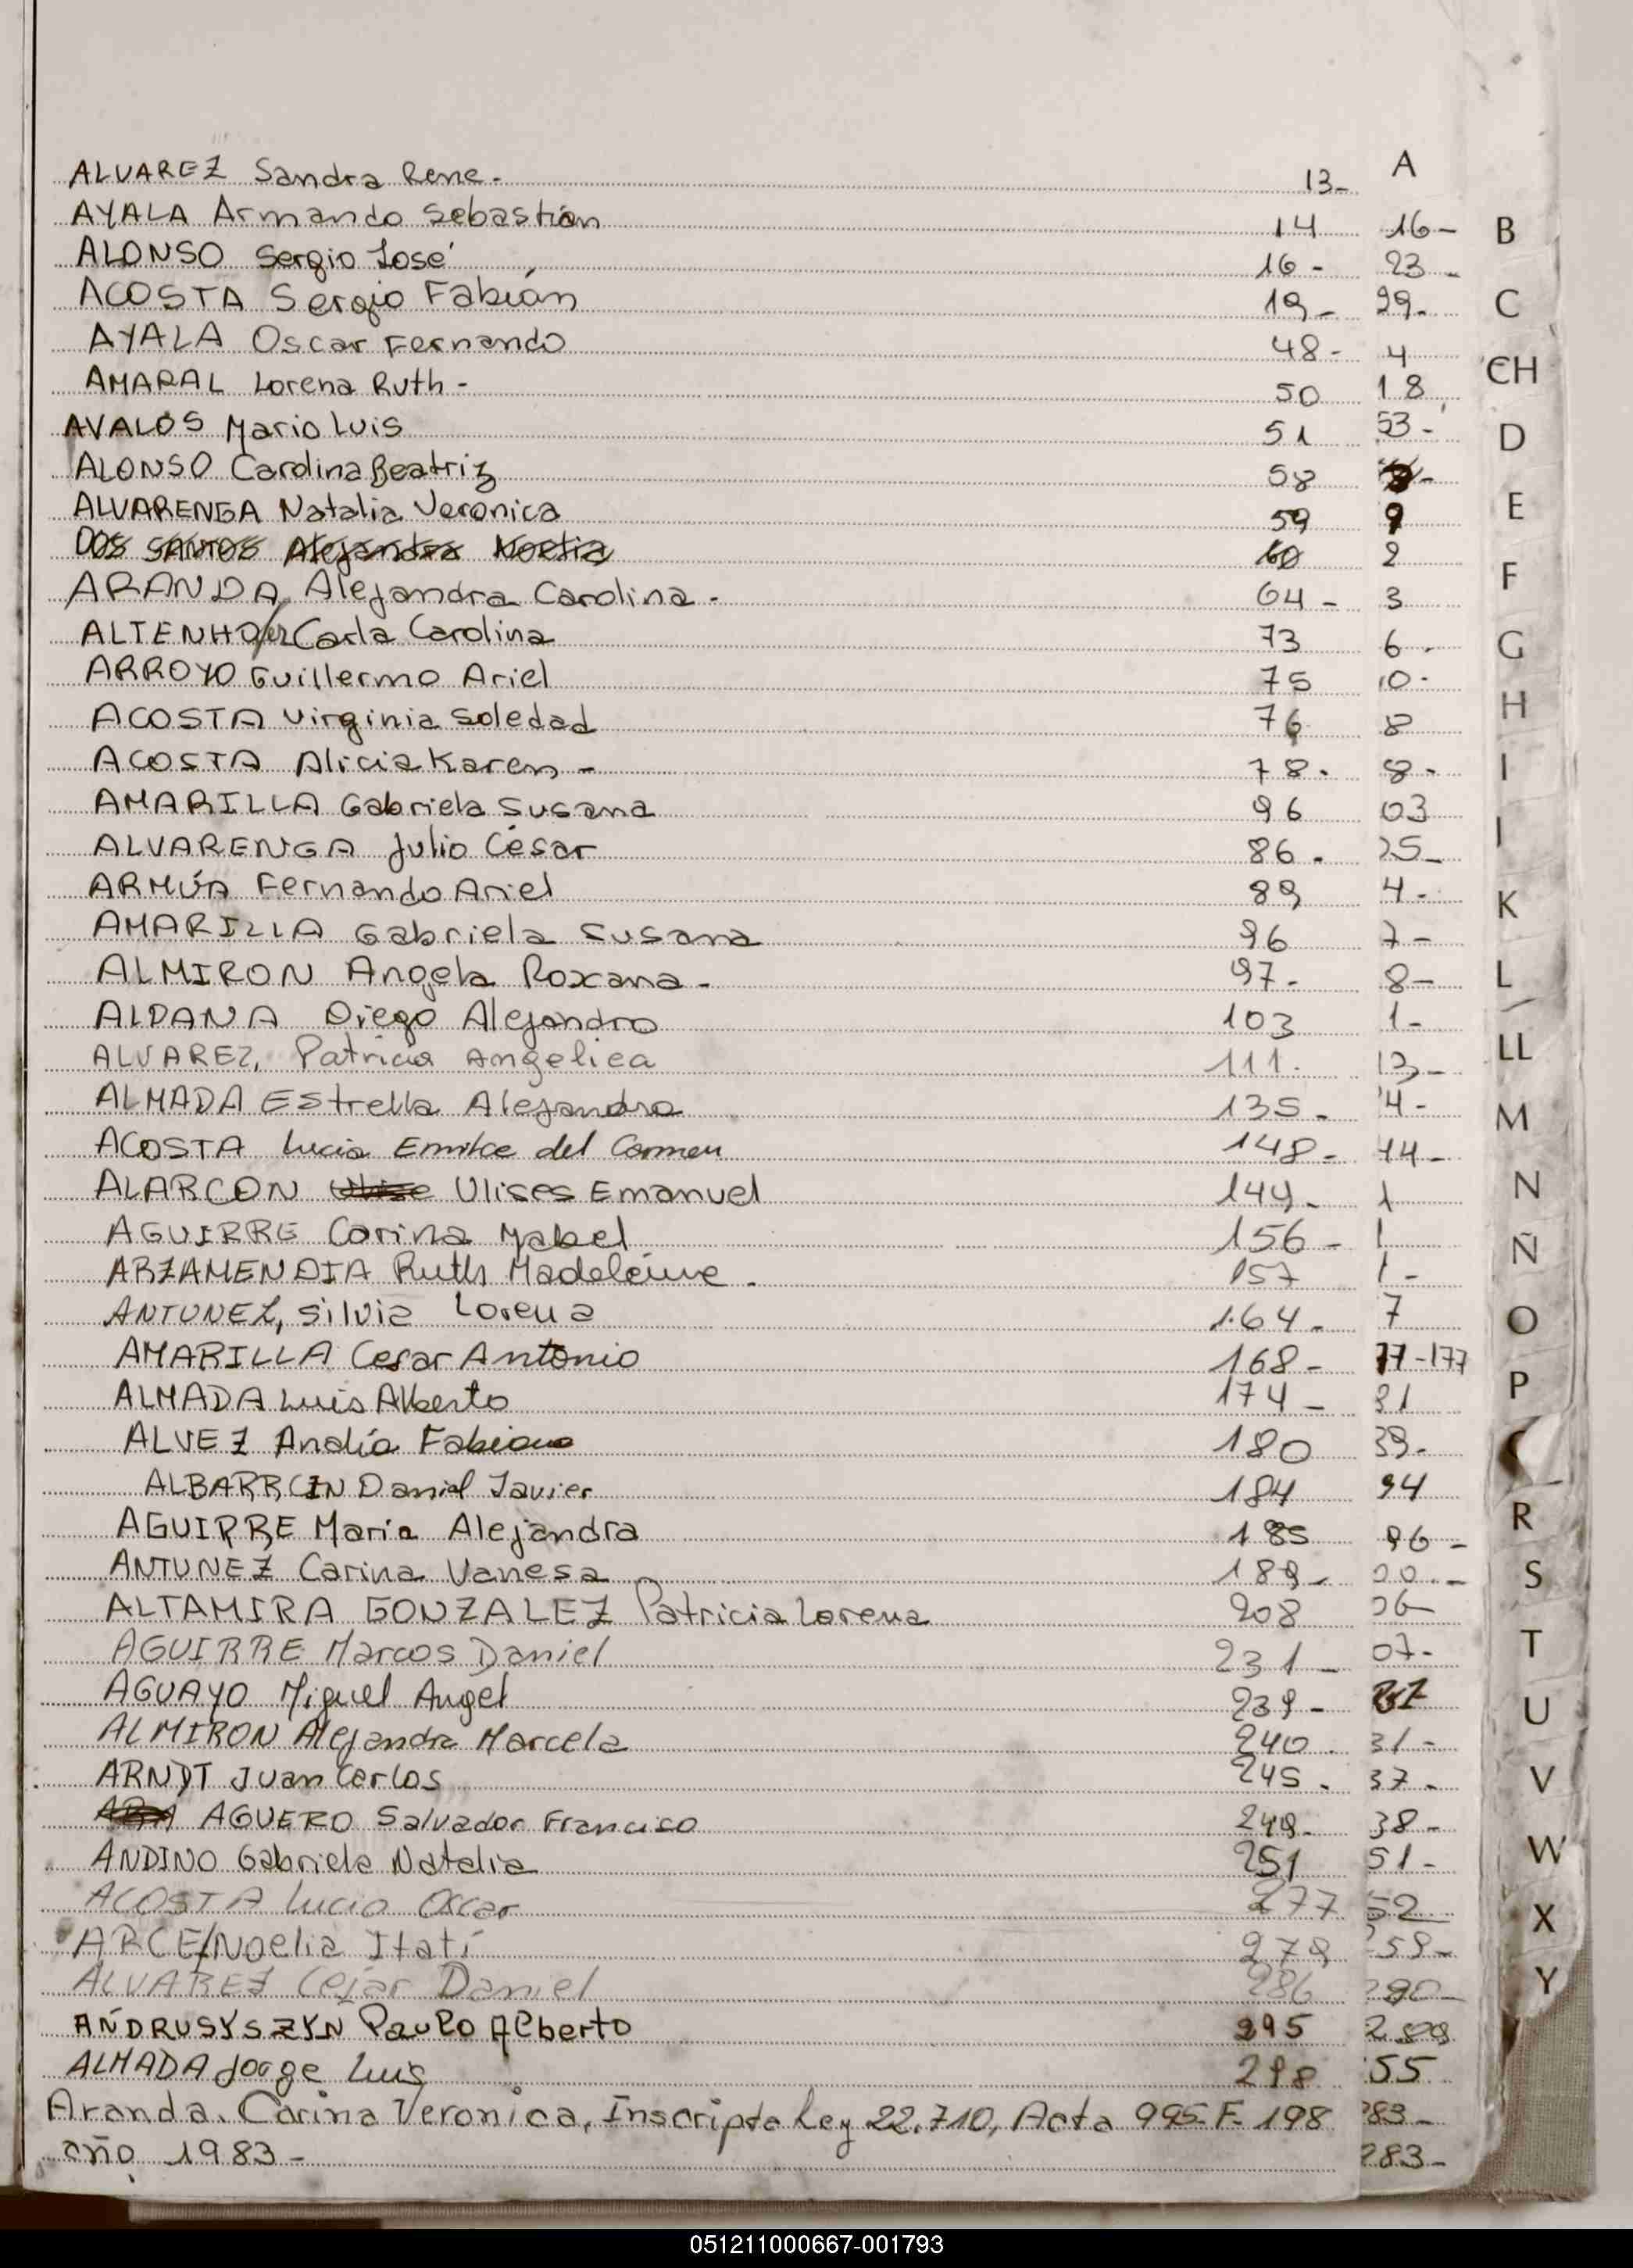 A
ALVAREZ Sandra Rene - 13-
AYALA Armando Sebastián 14 16-
ALONSO Sergio José 16- 23-
ACOSTA Sergio Fabián 19- 29-
AYALA Oscar Fernando 48- 4
AMARAL Lorena Ruth - 50 18
AVALOS Mario Luis 51 53-
ALONSO Carolina Beatriz 58
ALVARENGA Natalia Veronica 59 9
DOS SANTOS Alejandra Noelia 60 2
ARANDA, Alejandra Carolina - 64- 3
ALTENHOFER Carla Carolina 73 6.
ARROYO Guillermo Ariel 75 10-
ACOSTA Virginia Soledad 76 8
ACOSTA Alicia Karen - 78. 8-
AMARILLA Gabriela Susana 96 03
ALVARENGA Julio César 86. 25-
ARMÚA Fernando Ariel 89 4-
AMARILLA Gabriela Susana 96 7-
ALMIRON Angela Roxana - 97- 8-
ALDANA Diego Alejandro 103 1-
ALVAREZ, Patricia Angelica 111. 13-
ALMADA Estrella Alejandra 135- 4-
ACOSTA Lucia Emilce del Carmen 148- 14-
ALARCON Ulise Ulises Emanuel 149- 1
AGUIRRE Carina Mabel 156- 1
ARZAMENDIA Ruth Madeleine. 157 1-
ANTUNEZ, Silvia Lorena 164- 7
AMARILLA Cesar Antonio 168- 77-177
ALMADA Luis Alberto 174- 81
ALVEZ Analía Fabiana 180 39-
ALBARRCIN Daniel Javier 184 94
AGUIRRE María Alejandra 185 96-
ANTUNEZ Carina Vanesa 189- 00.-
ALTAMIRA GONZALEZ Patricia Lorena 208 06-
AGUIRRE Marcos Daniel 231- 07-
AGUAYO Miguel Angel 239-
ALMIRON Alejandra Marcela 240. 31-
ARNDT Juan Carlos 245- 37-
AGUERO Salvador Francisco 249- 38-
ANDINO Gabriela Natalia 251 51-
ACOSTA Lucio Oscar 277 52
ARCE/Noelia Itatí 279 259-
ALVAREZ Cejar Daniel 286 290-
ANDRUSYSZYN Paulo Alberto 295 289
ALMADA Jorge Luis 298 55
Aranda, Carina Veronica, Inscripta Ley 22.710, Acta 995 F- 198 283-
año 1983- 283-
B
C
CH
D
E
F
G
H
I
J
K
L
LL
M
N
Ñ
O
P
R
S
T
U
V
W
X
Y
051211000667-001793